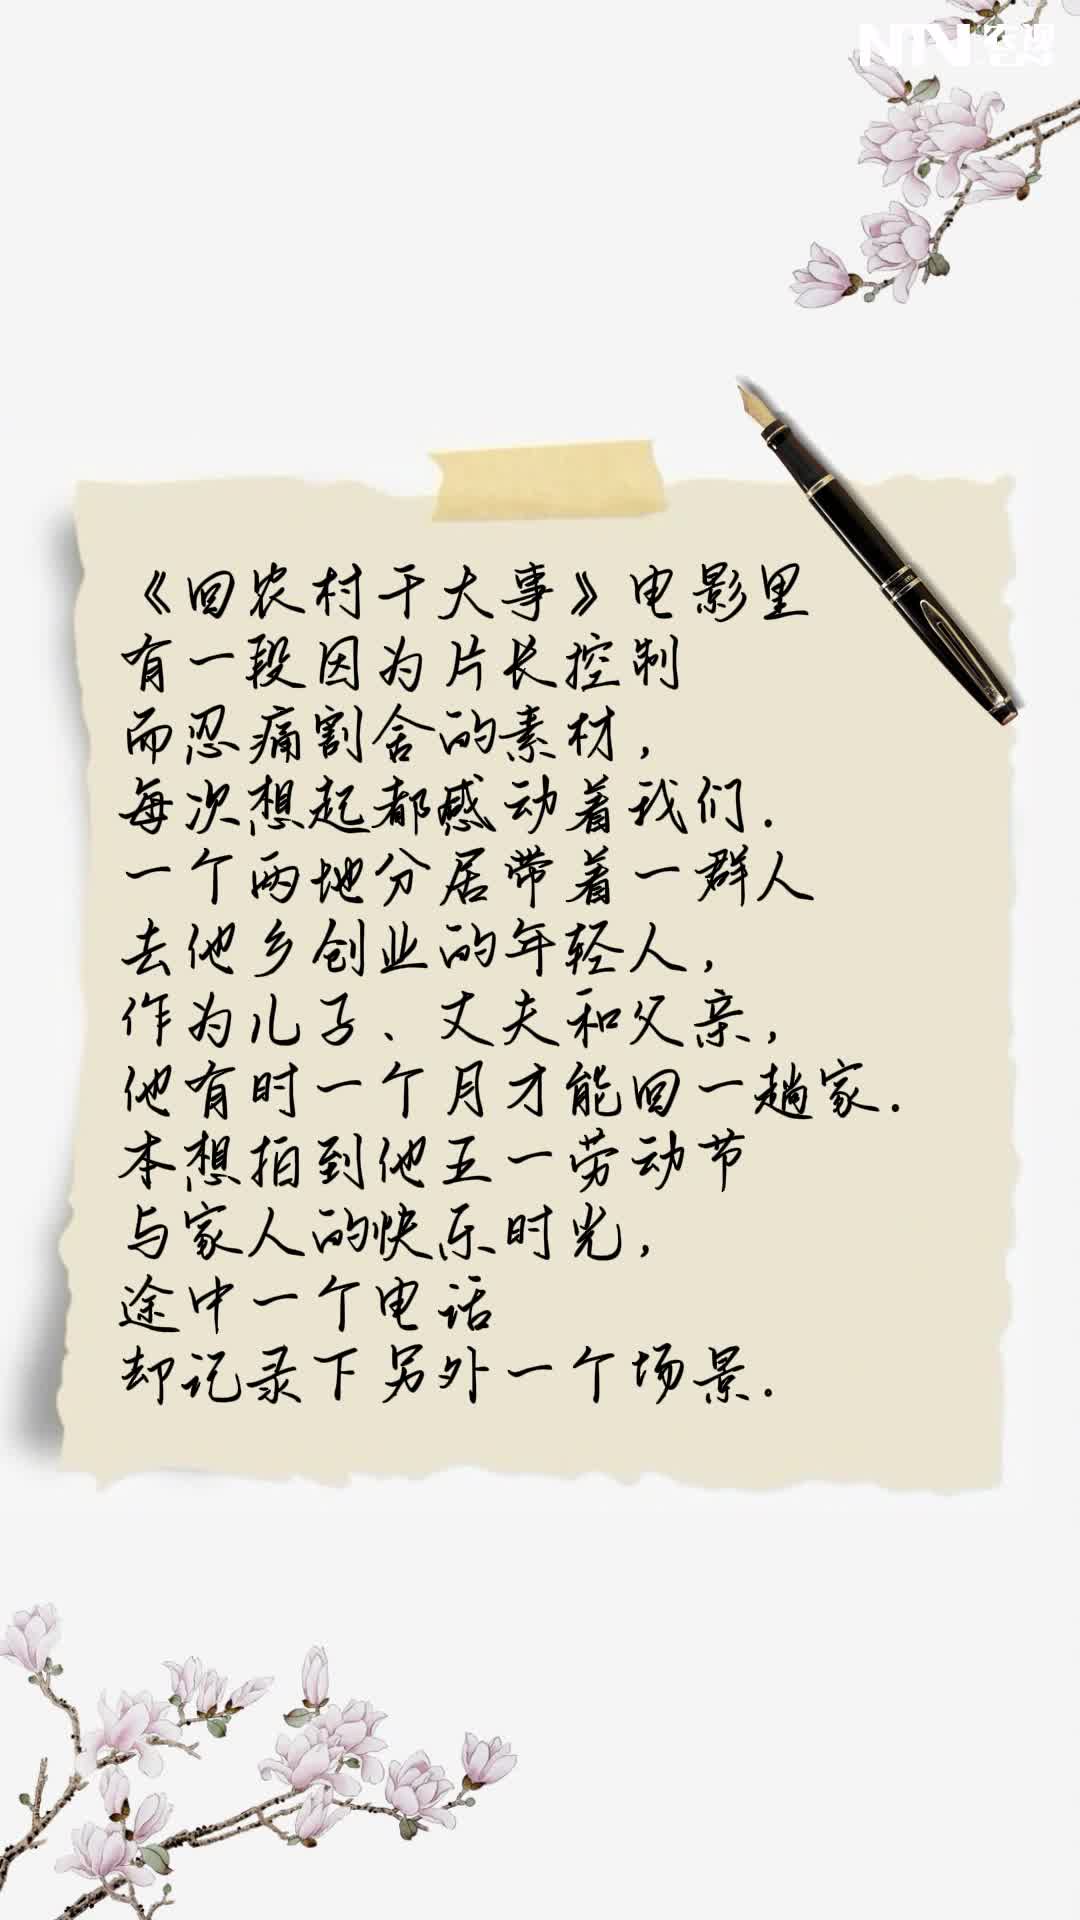 NTV
《回农村干大事》电影里
有一段因为片长控制
而忍痛割舍的素材，
每次想起都感动着我们.
一个两地分居带着一群人
去他乡创业的年轻人，
作为儿子、丈夫和父亲，
他有时一个月才能回一趟家.
本想拍到他五一劳动节
与家人的快乐时光，
途中一个电话
却记录下另外一个场景.